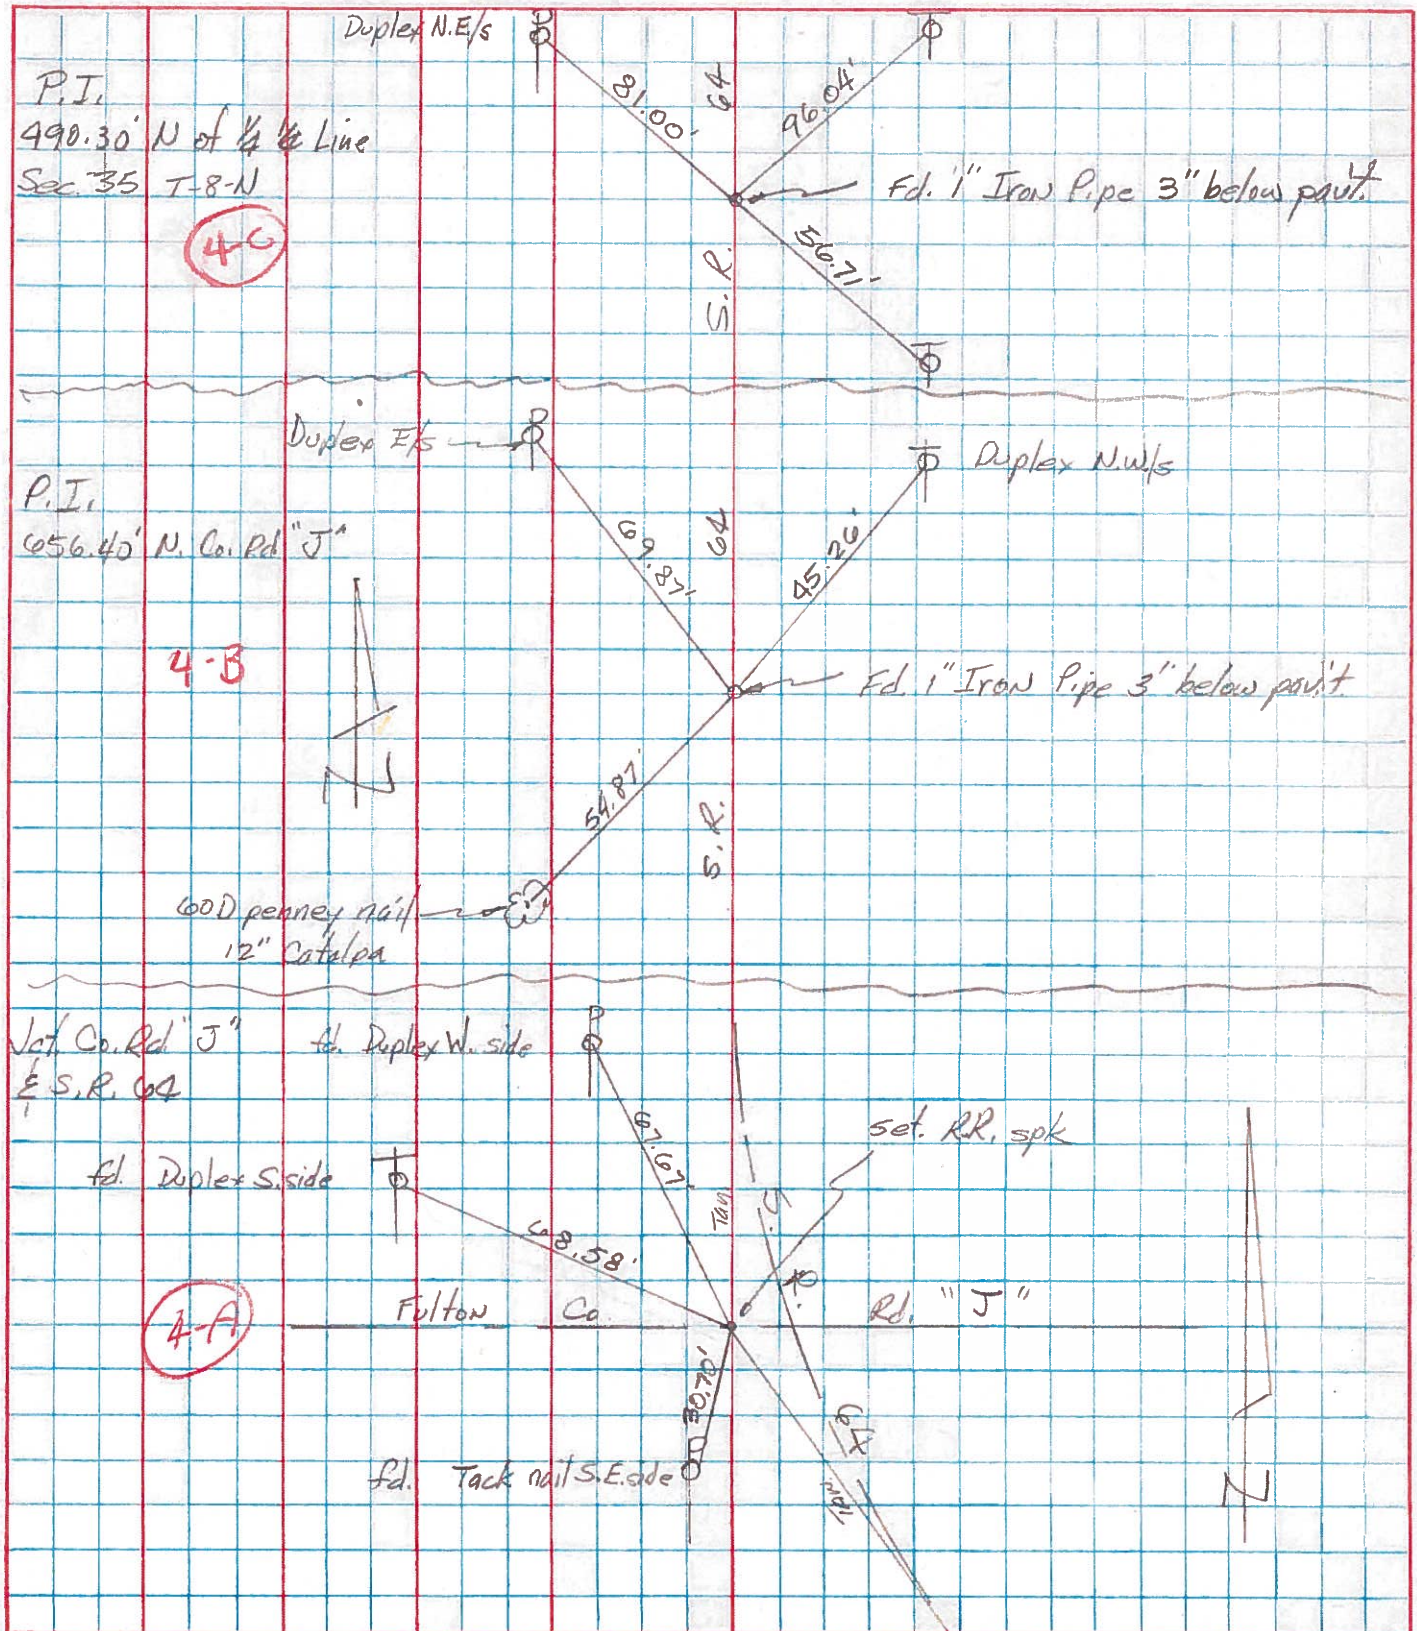 Duplex N.E/s
P.I.
490.30' N of 1/4 1/4 Line
Sec. 35 T-8-N
4-C
81.00'
64
96.04'
Fd. 1" Iron Pipe 3" below pav't.
56.71'
S. R.
Duplex E/s
P
Duplex N.W/s
P.I.
656.40' N. Co. Rd "J"
69.87'
64
45.26'
4-B
Fd. 1" Iron Pipe 3" below pav't.
N
54.87'
S. R.
60D penney nail
12" Catalpa
Jct. Co. Rd. "J"
& S. R. 64
fd. Duplex W. side
P
set. R.R. spk
fd. Duplex S. side
67.67'
Tan.
S.
R.
68.58'
4-A
Fulton Co. Rd. "J"
30.70'
64
fd. Tack nail S.E. side
Tan
N